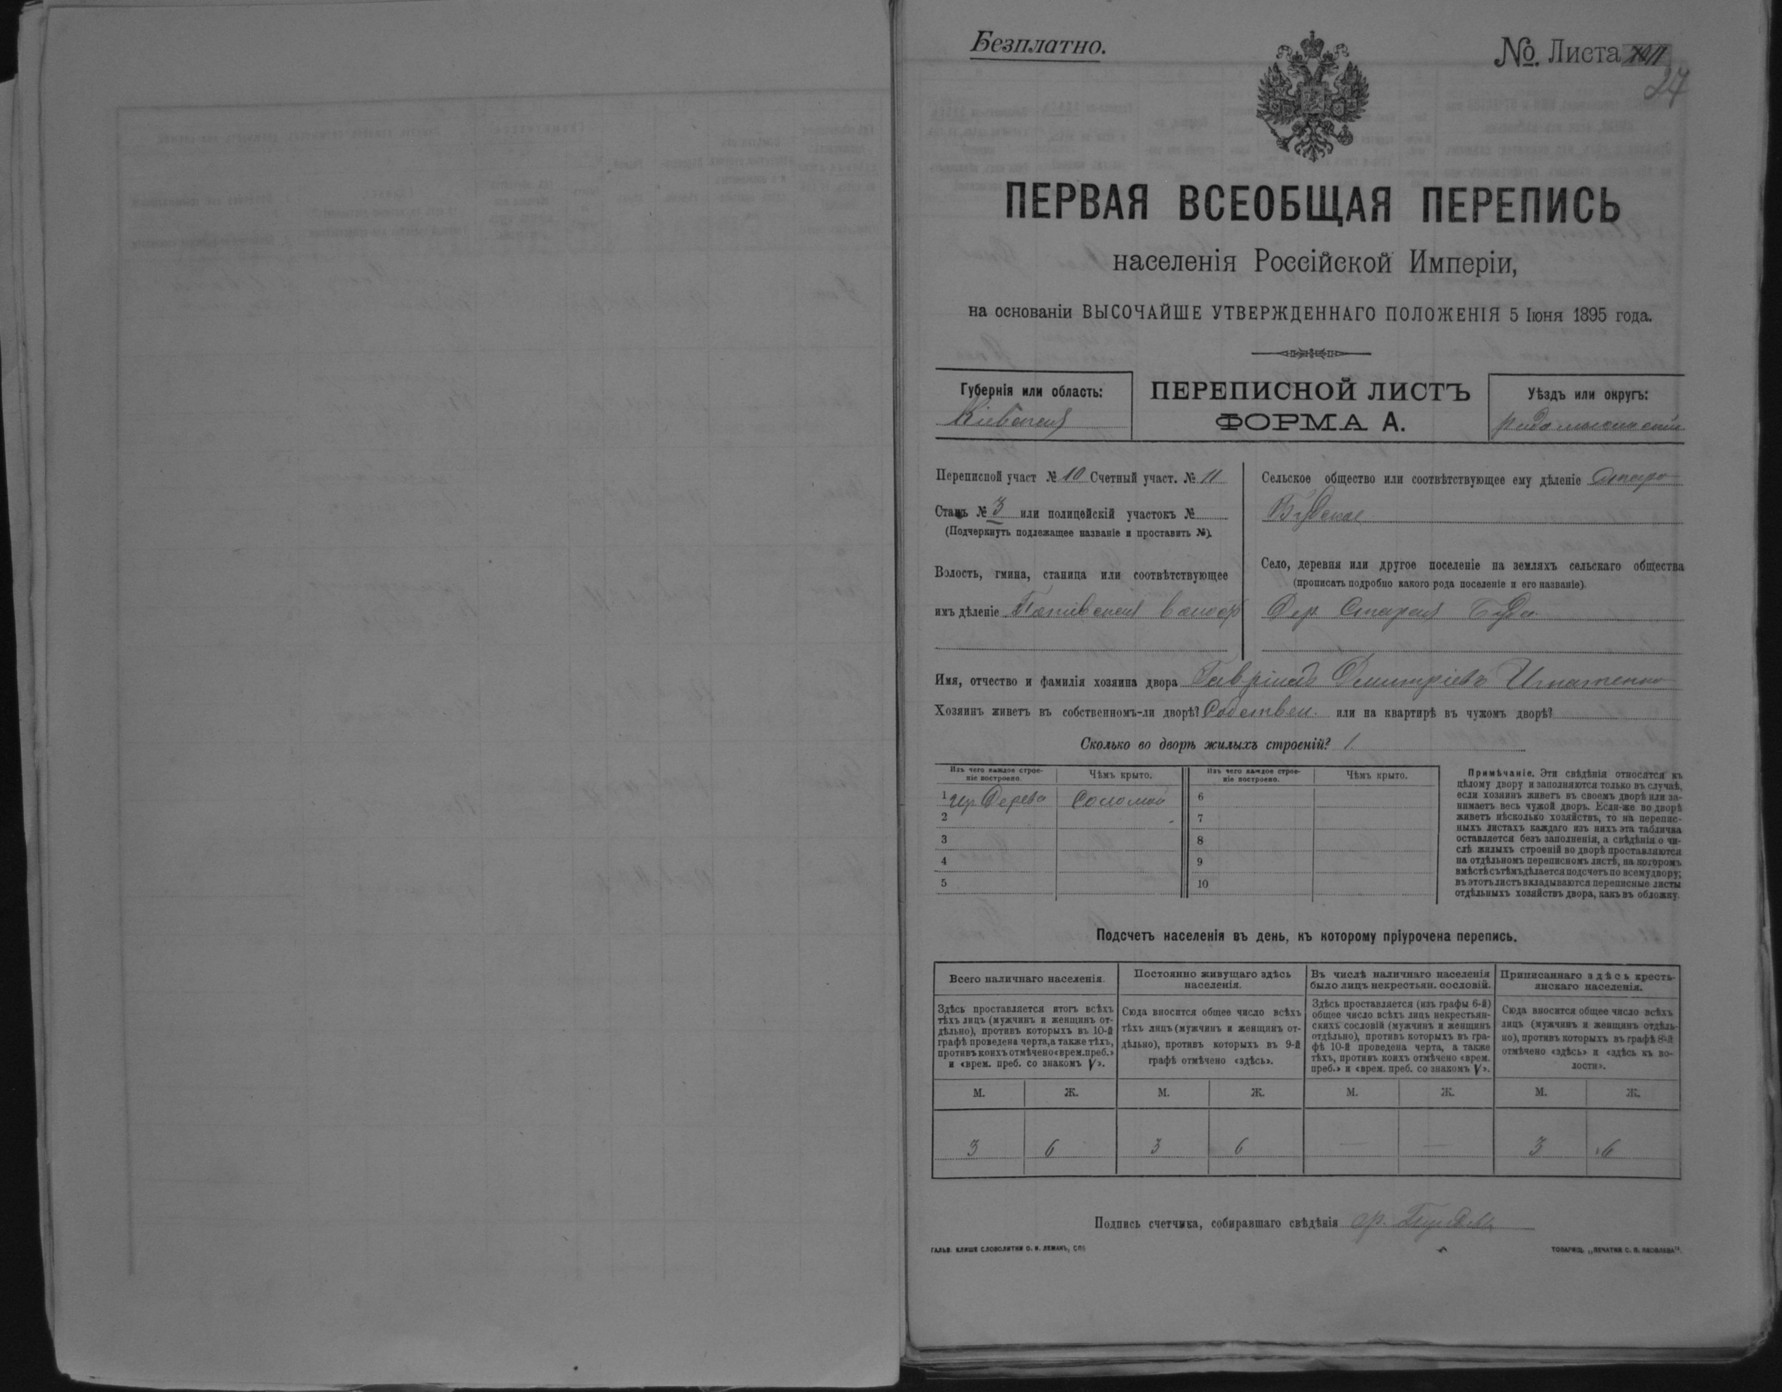 Безплатно.
№. Листа
27
ПЕРВАЯ ВСЕОБЩАЯ ПЕРЕПИСЬ
населенія Россійской Имперіи,
на основаніи ВЫСОЧАЙШЕ УТВЕРЖДЕННАГО ПОЛОЖЕНІЯ 5 Іюня 1895 года.
Губернія или область:
Кіевская
ПЕРЕПИСНОЙ ЛИСТЪ
ФОРМА А.
Уѣздъ или округъ:
Радомысльскій
Переписной участ № 10 Счетный участ. № 11
Станъ № 3 или полицейскій участокъ №
(Подчеркнуть подлежащее названіе и проставить №).
Волость, гмина, станица или соотвѣтствующее
имъ дѣленіе
Сельское общество или соотвѣтствующее ему дѣленіе Старо
Будское
Село, деревня или другое поселеніе на земляхъ сельскаго общества
(прописать подробно какого рода поселеніе и его названіе).
Дер. Старая Буда
Имя, отчество и фамилія хозяина двора Гавріилъ Дмитріевъ Игнатенко
Хозяинъ живетъ въ собственномъ-ли дворѣ? Собствен. или на квартирѣ въ чужомъ дворѣ?
Сколько во дворѣ жилыхъ строеній? 1
Изъ чего каждое строе-
ніе построено.
Чѣмъ крыто.
Изъ чего каждое строе-
ніе построено.
Чѣмъ крыто.
1 изъ Дерева Соломой 6
2 7
3 8
4 9
5 10
Примѣчаніе. Эти свѣдѣнія относятся къ
цѣлому двору и заполняются только въ случаѣ,
если хозяинъ живетъ въ своемъ дворѣ или за-
нимаетъ весь чужой дворъ. Если-же во дворѣ
живетъ нѣсколько хозяйствъ, то на перепис-
ныхъ листахъ каждаго изъ нихъ эта табличка
оставляется безъ заполненія, а свѣдѣнія о чи-
слѣ жилыхъ строеній во дворѣ проставляются
на отдѣльномъ переписномъ листѣ, на которомъ
вмѣстѣ съ тѣмъ дѣлается подсчетъ по всему двору;
въ этотъ листъ вкладываются переписные листы
отдѣльныхъ хозяйствъ двора, какъ въ обложку.
Подсчетъ населенія въ день, къ которому пріурочена перепись.
Всего наличнаго населенія.
Здѣсь проставляется итогъ всѣхъ
тѣхъ лицъ (мужчинъ и женщинъ от-
дѣльно), противъ которыхъ въ 10-й
графѣ проведена черта, а также тѣхъ,
противъ коихъ отмѣчено «врем. преб.»
и «врем. преб. со знакомъ V».
Постоянно живущаго здѣсь
населенія.
Сюда вносится общее число всѣхъ
тѣхъ лицъ (мужчинъ и женщинъ от-
дѣльно), противъ которыхъ въ 9-й
графѣ отмѣчено «здѣсь».
Въ числѣ наличнаго населенія
было лицъ некрестьян. сословій.
Здѣсь проставляется (изъ графы 6-й)
общее число всѣхъ лицъ некрестьян-
скихъ сословій (мужчинъ и женщинъ
отдѣльно), противъ которыхъ въ гра-
фѣ 10-й проведена черта, а также
тѣхъ, противъ коихъ отмѣчено «врем.
преб.» и «врем. преб. со знакомъ V».
Приписаннаго здѣсь кресть-
янскаго населенія.
Сюда вносится общее число всѣхъ
лицъ (мужчинъ и женщинъ отдѣль-
но), противъ которыхъ въ графѣ 8-й
отмѣчено «здѣсь» и «здѣсь въ во-
лости».
М. Ж. М. Ж. М. Ж. М. Ж.
3 6 3 6 — — 3 6
Подпись счетчика, собиравшаго свѣдѣнія
ГАЛЬВ. КЛИШЕ СЛОВОЛИТНИ О. И. ЛЕМАНЪ, СПБ
ТОВАРИЩ. „ПЕЧАТНЯ С. П. ЯКОВЛЕВА".